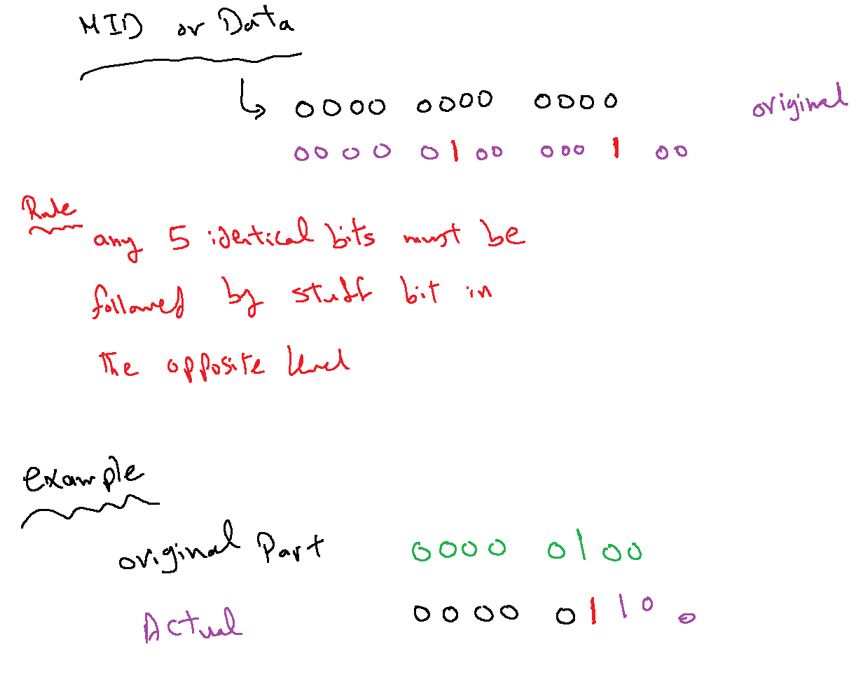 MID or Data
0000 0000 0000 original
0000 0100 0001 00
Rule
any 5 identical bits must be
followed by stuff bit in
the opposite level
example
original Part 0000 0100
Actual 0000 0110 0